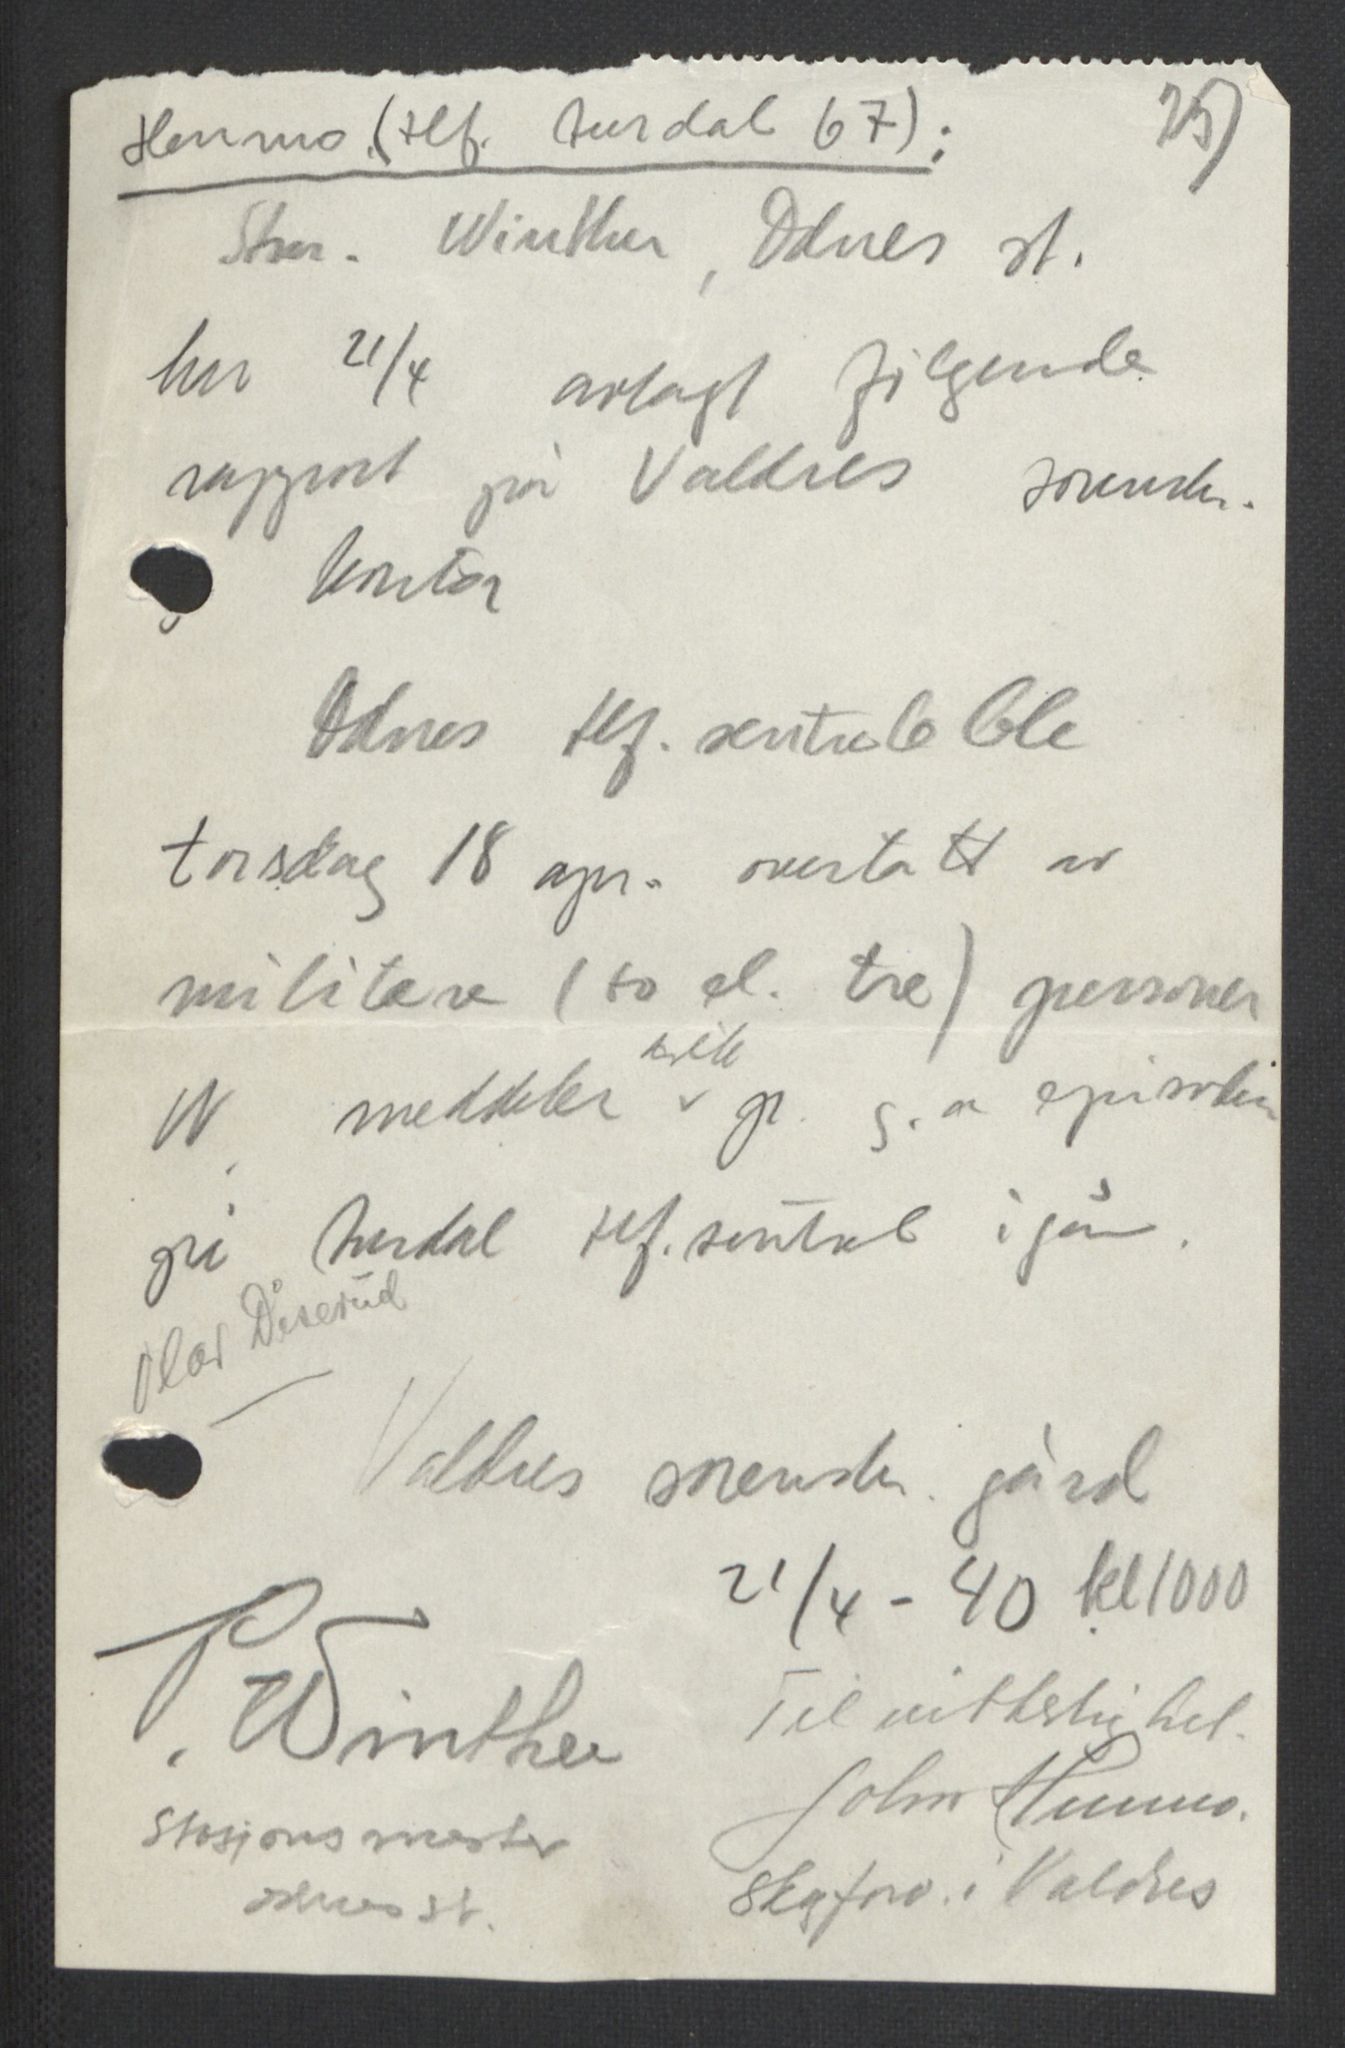 25)
Hermo. (tlf. Aurdal 67):
Stm. Winther, Odnes st.
har 21/4 avlagt følgende
rapport på Valdres sorenskr.
kontor
Odnes tlf. sentral ble
torsdag 18 apr. overtatt av
militære (to el. tre) personer
W. meddeler dette p. g. a episoden
på Aurdal tlf. sentral igår.
Olav Diserud
Valdres sorenskr. gård
21/4 - 40 kl 1000
P. Winther
Stasjonsmester
Odnes st.
Til vitterlighet.
John Hermo.
Skogforv. i Valdres